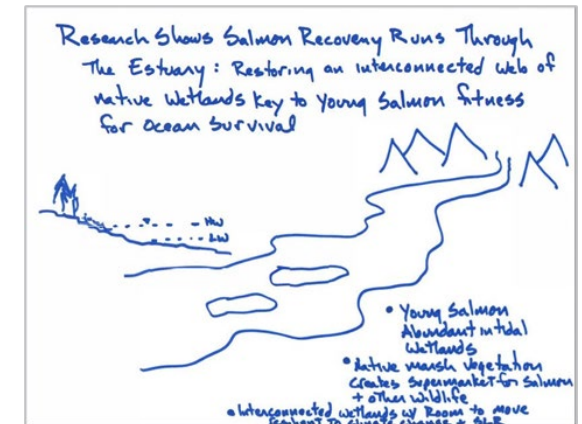 Research Shows Salmon Recovery Runs Through
The Estuary: Restoring an interconnected web of
native wetlands key to Young Salmon fitness
for Ocean Survival
HW
LW
• Young Salmon
Abundant in tidal
Wetlands
• Native marsh vegetation
creates supermarket for Salmon
+ other wildlife
• Interconnected wetlands w/ Room to move
to climate change + SLR